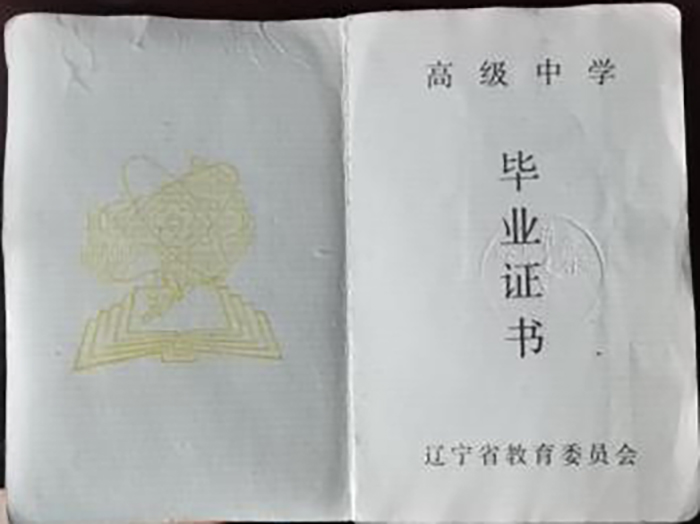 高级中学
毕业证书
辽宁省教育委员会